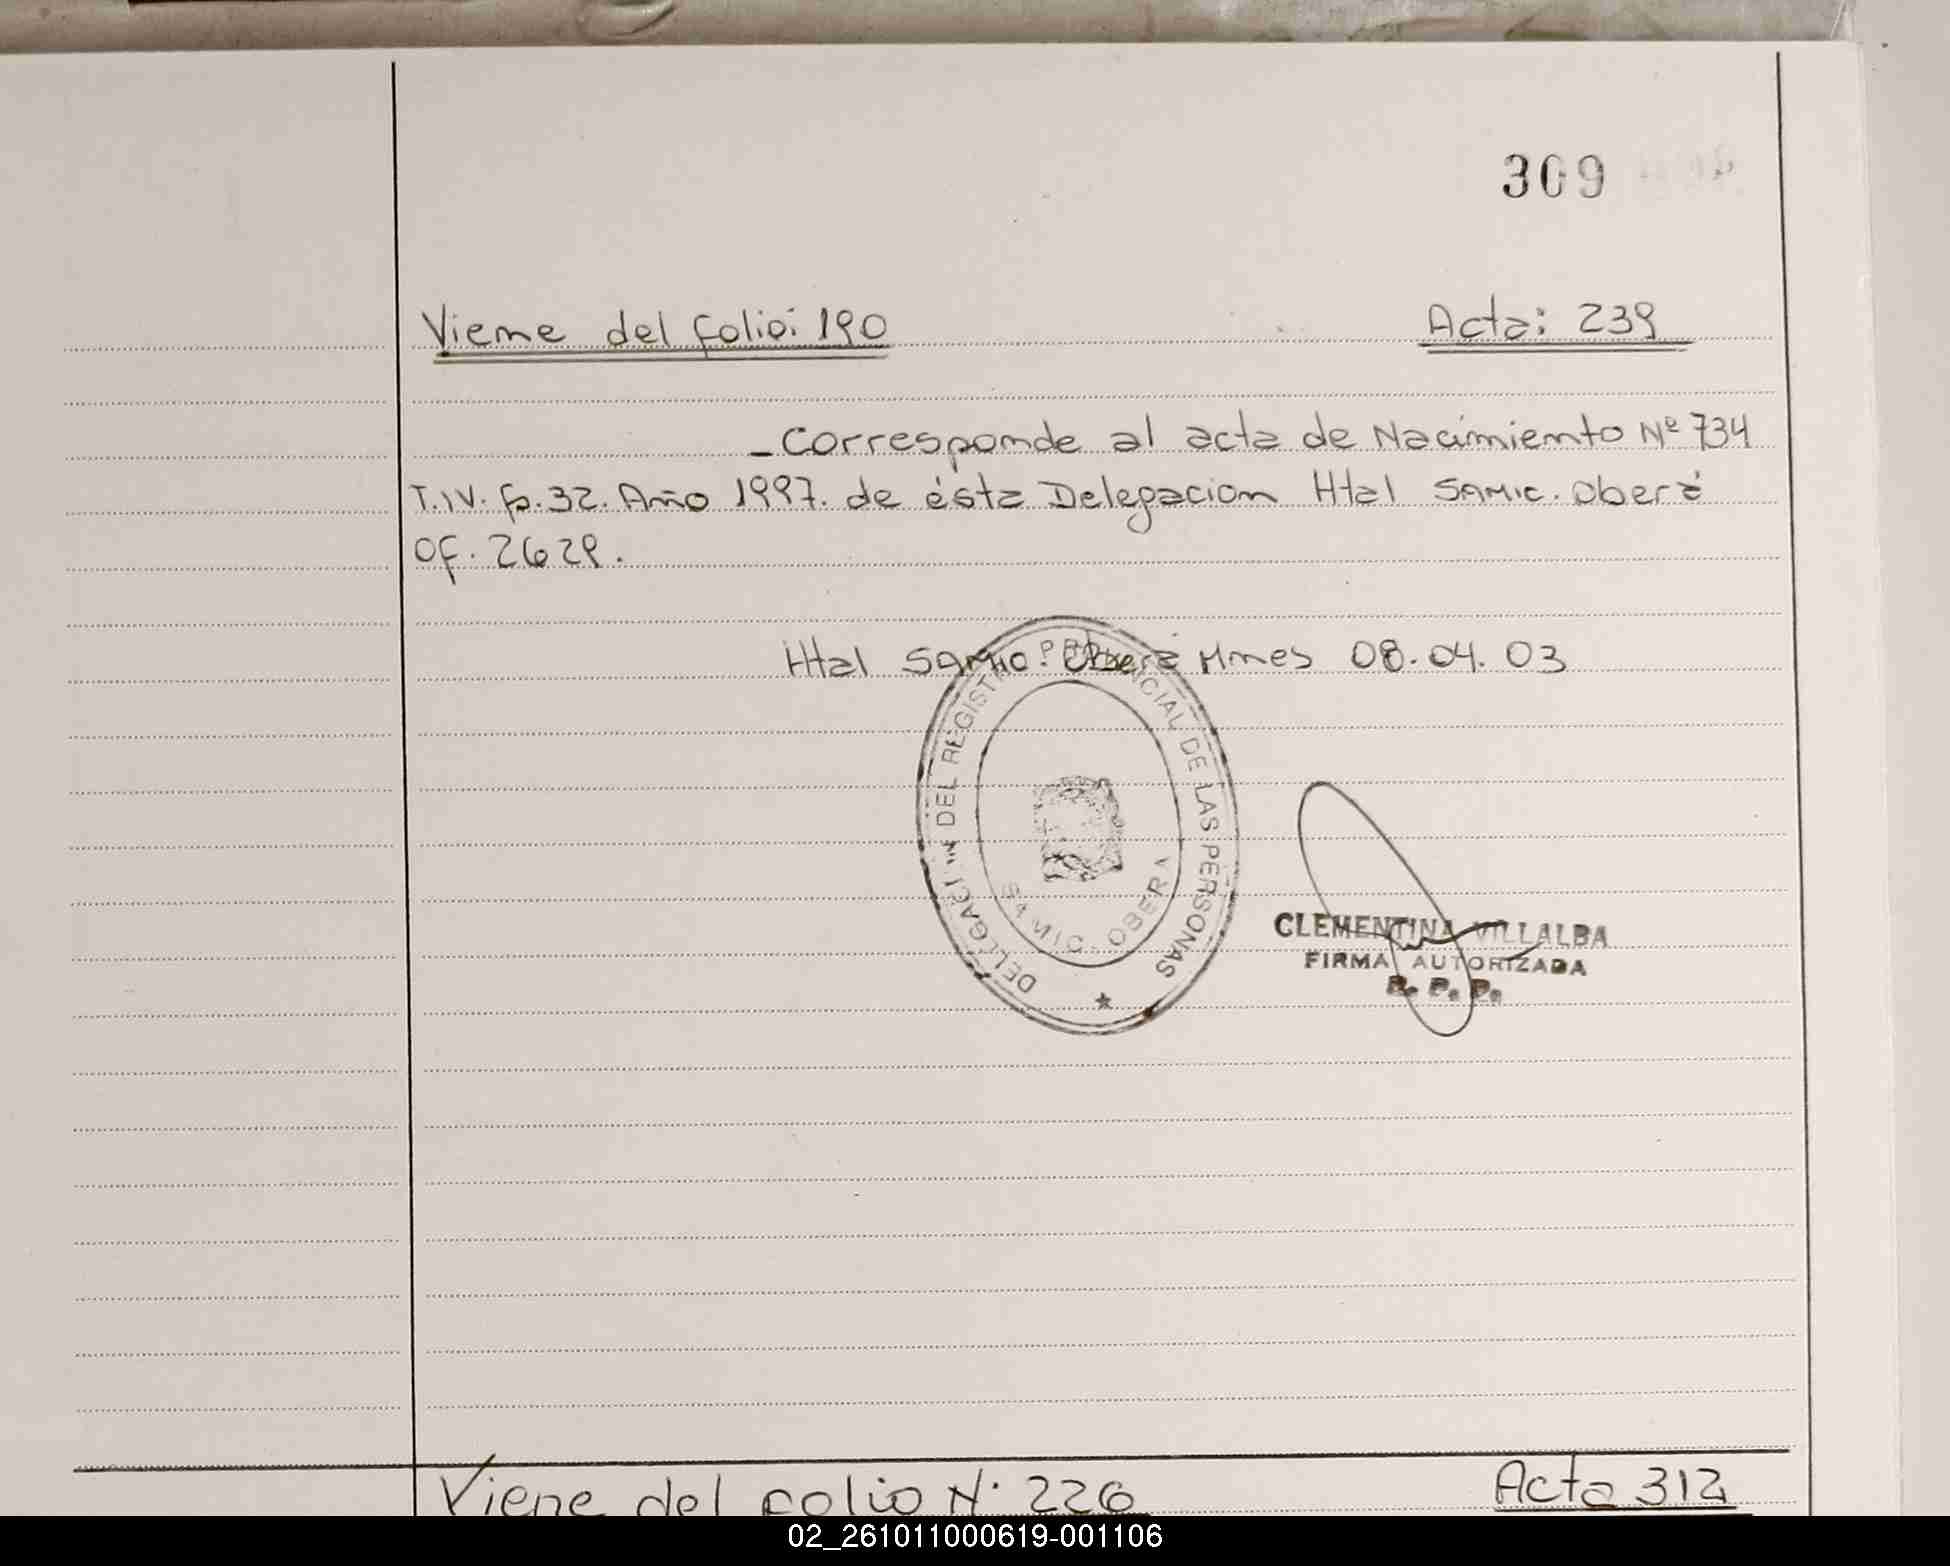 309
Viene del folio: 190 Acta: 239
_Corresponde al acta de Nacimiento Nº 734
T.IV. fo. 32. Año 1997. de ésta Delegacion Htal SAMIC. Oberá
Of. 2629.
Htal SAMIC. Oberá Mnes 08.04.03
DELEGACIÓN DEL REGISTRO PROVINCIAL DE LAS PERSONAS
SAMIC - OBERA
CLEMENTINA VILLALBA
FIRMA AUTORIZADA
R. P. P.
Viene del folio N. 226 Acta 312
02_261011000619-001106